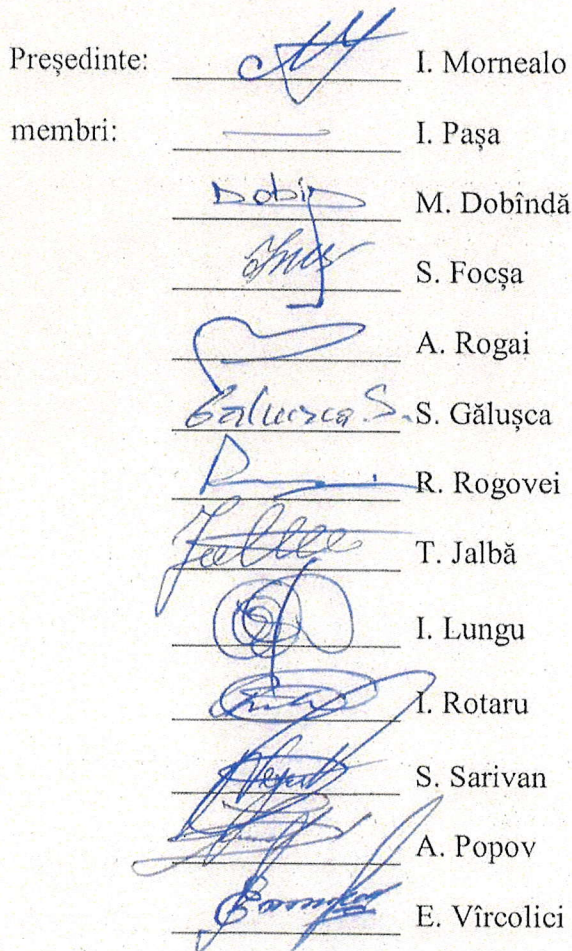 Președinte: I. Mornealo
membri: I. Pașa
Dobin M. Dobîndă
S. Focșa
A. Rogai
Galusca S. S. Gălușca
R. Rogovei
T. Jalbă
I. Lungu
I. Rotaru
S. Sarivan
A. Popov
E. Vîrcolici